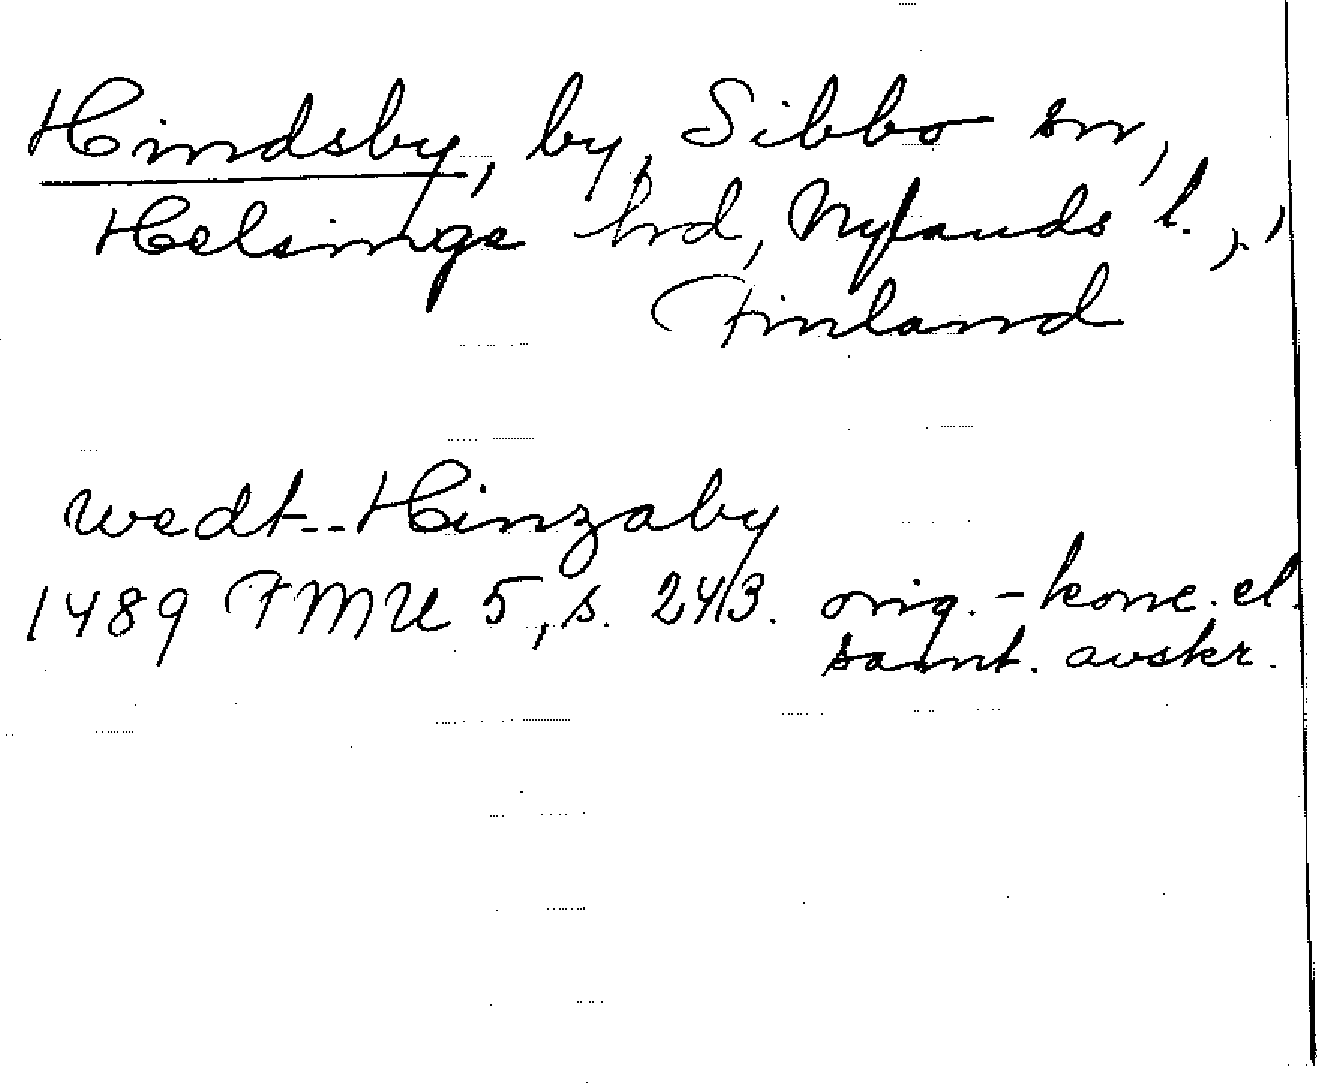 Hindsby, by, Sibbo sn,
Helsinge hrd, Nylands l.,
Finland
wedt--Hinzaby
1489 FMU 5, s. 243. orig.-konc. el.
samt. avskr.